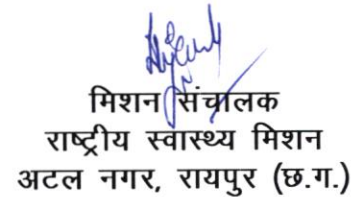 मिशन संचालक
राष्ट्रीय स्वास्थ्य मिशन
अटल नगर, रायपुर (छ.ग.)